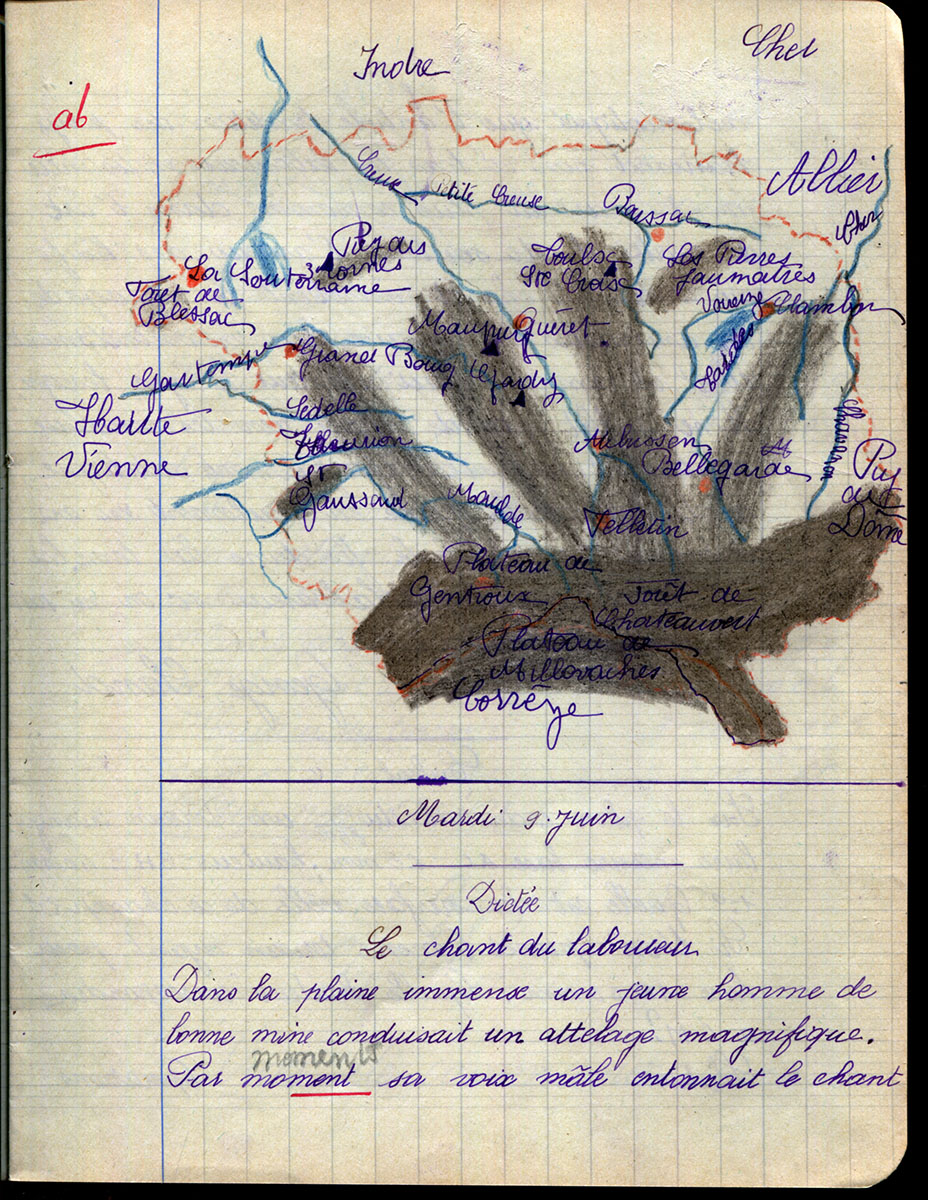 Indre
Cher
ab
Allier
Creuse
Petite Creuse
Boussac
Cher
Puy des
3 Cornes
Toulx
Ste Croix
Les Pierres
Jaumatres
La Souterraine
Forêt de
Blessac
Voueize
Chambon
Maupuy
Guéret
Gartempe
Grand Bourg
Gardy
Haute
Vienne
Sedelle
Thaurion
Aubusson
Bellegarde
Puy
de
Dôme
St
Gaussaud
Maulde
Felletin
Plateau de
Gentioux
Forêt de
Chateauvert
Plateau de
Millevaches
Corrèze
Mardi 9 Juin
Dictée
Le chant du laboureur
Dans la plaine immense un jeune homme de
bonne mine conduisait un attelage magnifique.
moments
Par moment sa voix mâle entonnait le chant